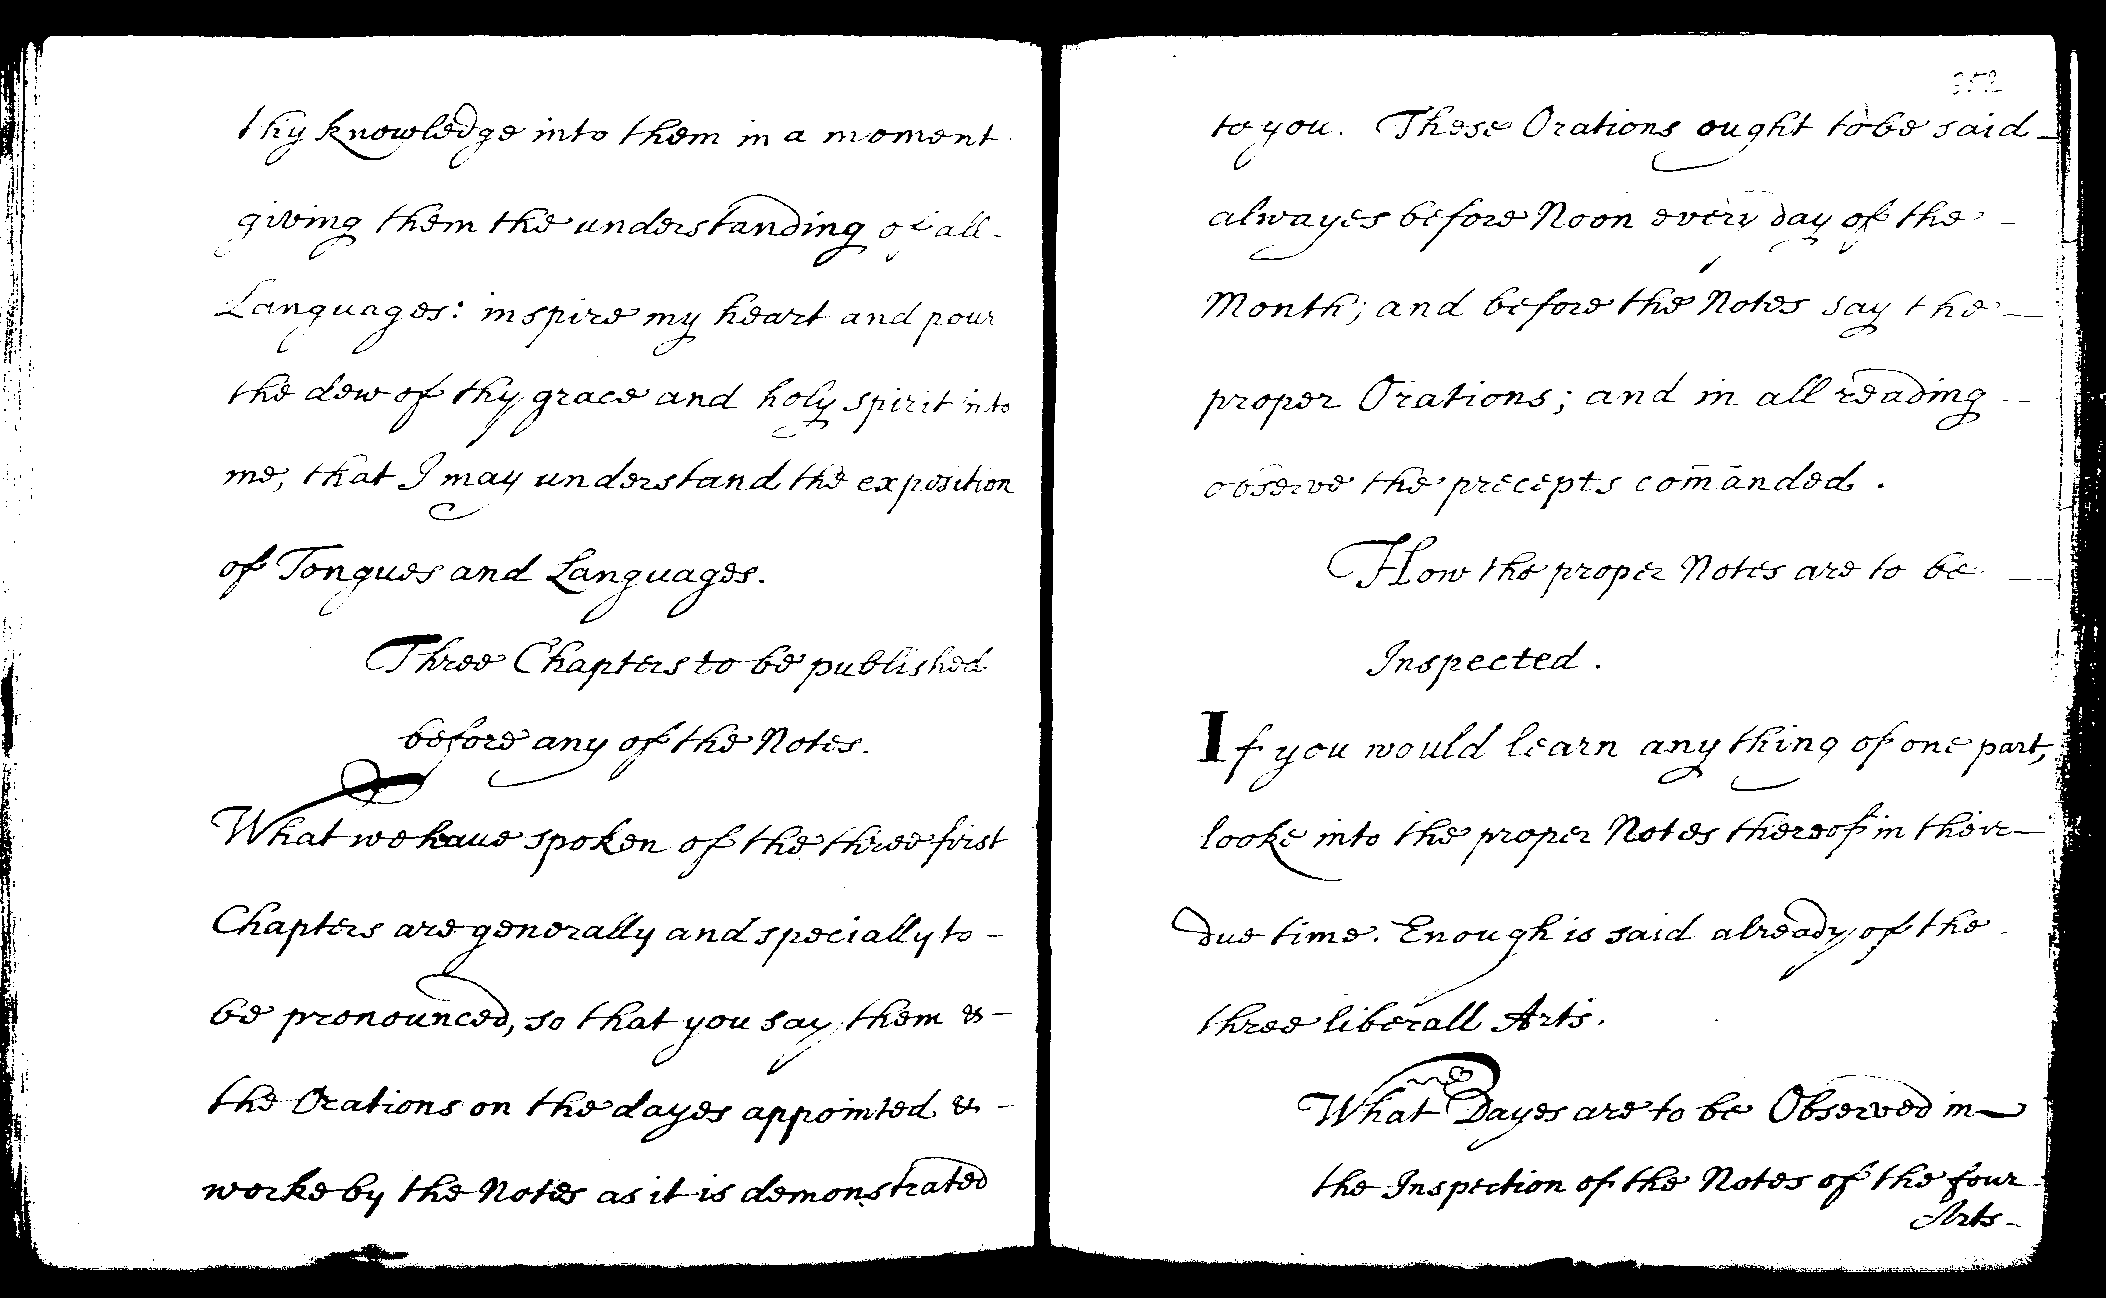 thy knowledge into them in a moment
giving them the understanding of all -
Languages: inspire my heart and pour
the dew of thy grace and holy spirit into
me, that I may understand the exposition
of Tongues and Languages.
Three Chapters to be published
before any of the Notes.
What we haue spoken of the three first
Chapters are generally and specially to -
be pronounced, so that you say them & -
the Orations on the dayes appointed & -
worke by the Notes as it is demonstrated
352
to you. These Orations ought to be said -
alwayes before Noon every day of the -
Month; and before the Notes say the -
proper Orations; and in all reading -
observe the precepts com̄ānded.
How the proper Notes are to be -
Inspected.
If you would learn any thing of one part,
looke into the proper Notes thereof in their -
due time. Enough is said already of the -
three liberall Arts.
What Dayes are to be Observed in -
the Inspection of the Notes of the four
Arts -